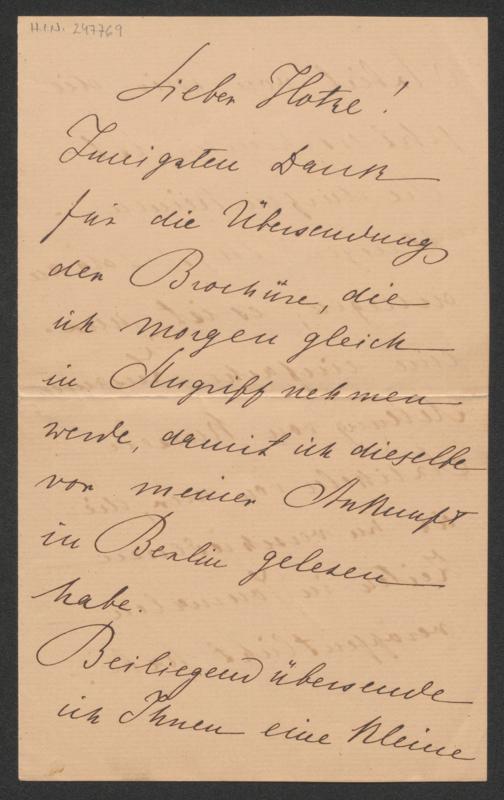 H.I.N. 247769
Lieber Hotze!
Innigsten Dank
für die Übersendung
der Brochüre, die
ich morgen gleich
in Angriff nehmen
werde, damit ich dieselbe
vor meiner Ankunft
in Berlin gelesen
habe.
Beiliegend übersende
ich Ihnen eine kleine